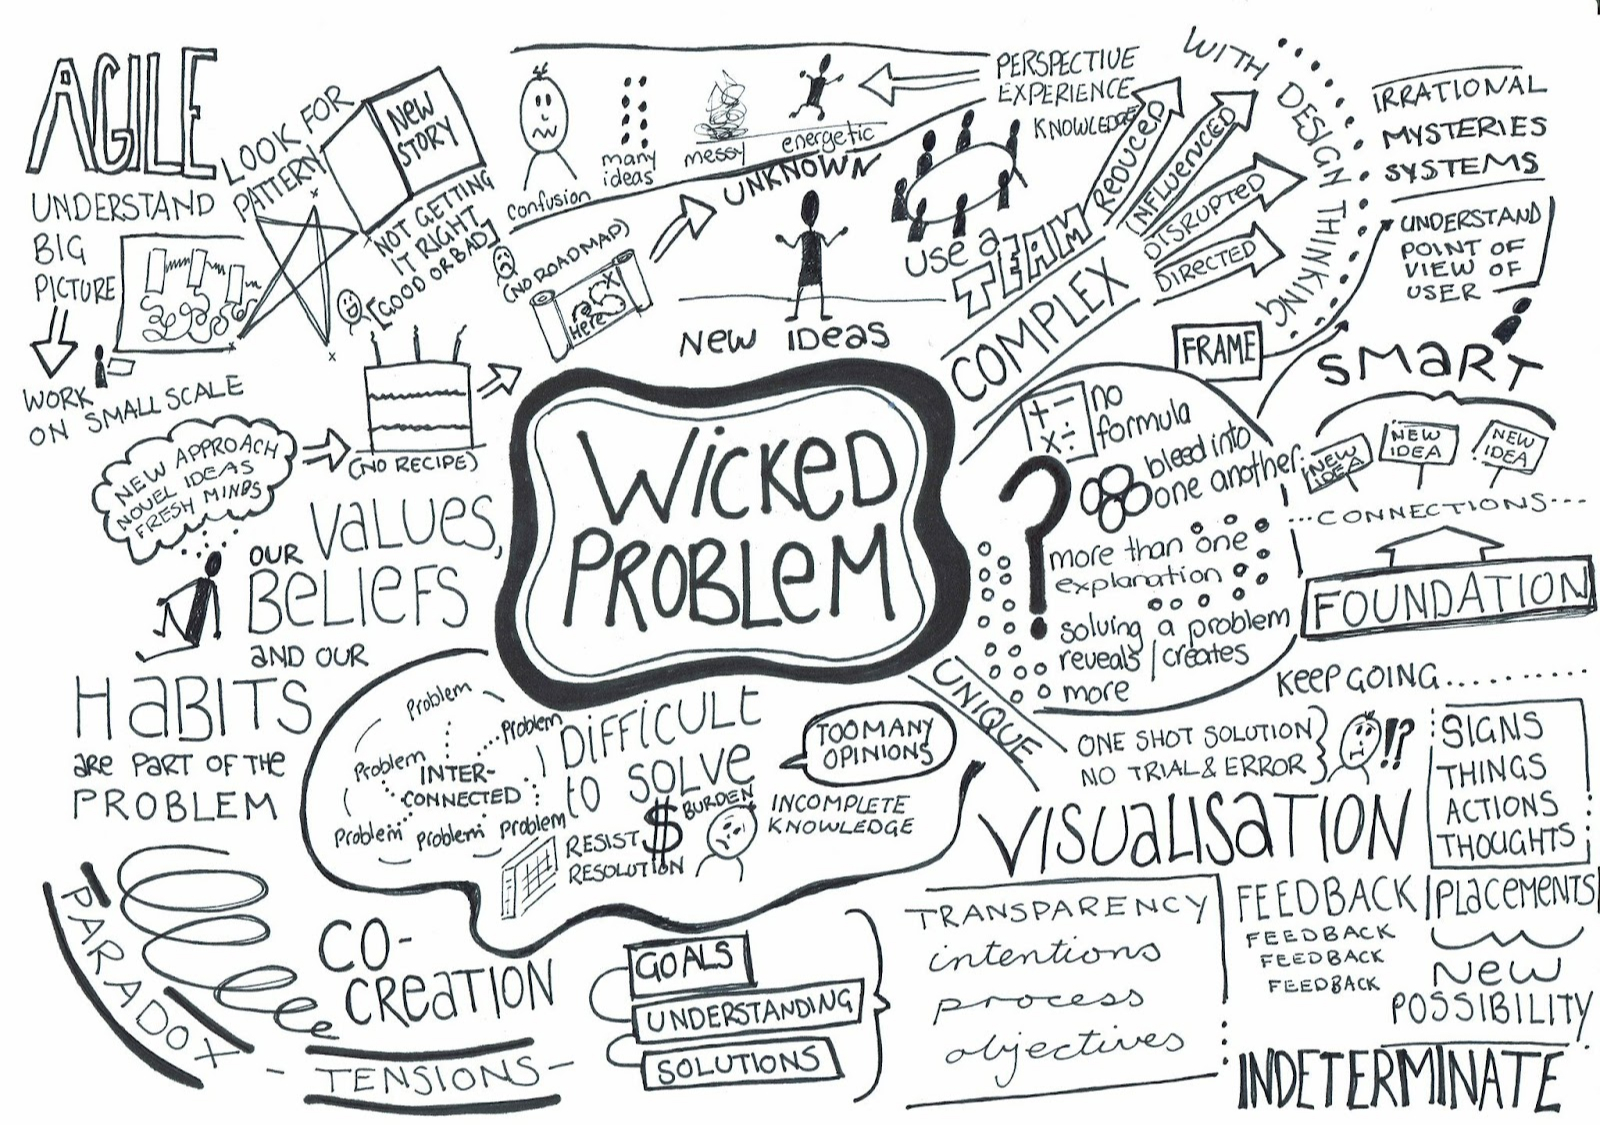 AGILE
UNDERSTAND
BIG
PICTURE
WORK
ON SMALL SCALE
LOOK FOR
PATTERN
NEW
STORY
NOT GETTING
IT RIGHT
[GOOD OR BAD]
confusion
many
ideas
messy
energetic
PERSPECTIVE
EXPERIENCE
KNOWLEDGE
UNKNOWN
(NO ROADMAP)
Here
X
NEW IDEAS
(NO RECIPE)
NEW APPROACH
NOVEL IDEAS
FRESH MINDS
USE a
TEAM
COMPLEX
REDUCED
INFLUENCED
DISRUPTED
DIRECTED
WITH DESIGN THINKING
IRRATIONAL
MYSTERIES
SYSTEMS
UNDERSTAND
POINT OF
VIEW OF
USER
FRAME
SMART
NEW
IDEA
NEW
IDEA
NEW
IDEA
...CONNECTIONS....
FOUNDATION
KEEP GOING..........
WICKED
PROBLEM
+ -
× ÷
no
formula
bleed into
one another.
?
more than one
explanation
solving a problem
reveals/creates
more
UNIQUE
ONE SHOT SOLUTION
NO TRIAL & ERROR
!?
SIGNS
THINGS
ACTIONS
THOUGHTS
VISUALISATION
OUR VALUES,
BELIEFS
AND OUR
HABITS
are PART OF THE
PROBLEM
Problem
Problem
Problem
INTER-
CONNECTED
Problem
Problem
Problem
DIFFICULT
to SOLVE
RESIST
RESOLUTION
$
BURDEN
TOO MANY
OPINIONS
INCOMPLETE
KNOWLEDGE
PARADOX
CO-
CREATION
- TENSIONS -
GOALS
UNDERSTANDING
SOLUTIONS
TRANSPARENCY
intentions
process
objectives
FEEDBACK
FEEDBACK
FEEDBACK
FEEDBACK
PLACEMENTS
NEW
POSSIBILITY
INDETERMINATE